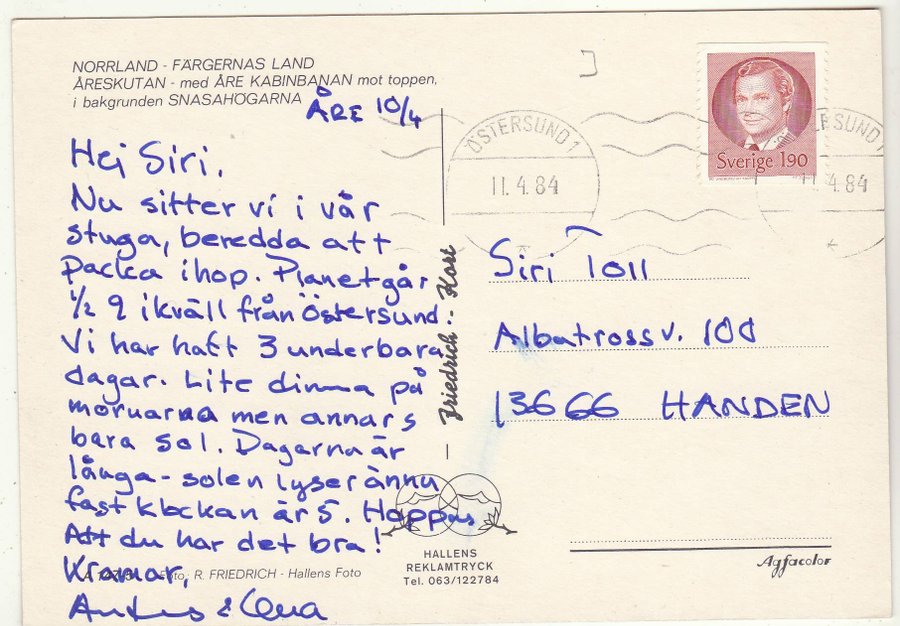 NORRLAND - FÄRGERNAS LAND
ÅRESKUTAN - med ÅRE KABINBANAN mot toppen,
i bakgrunden SNASAHÖGARNA
ÅRE 10/4
Hej Siri,
Nu sitter vi i vår
stuga, beredda att
packa ihop. Planet går
1/2 9 ikväll från Östersund.
Vi har haft 3 underbara
dagar. Lite dimma på
mornarna men annars
bara sol. Dagarna är
långa - solen lyser ännu
fast klockan är 5. Hoppas
Att du har det bra!
Kramar,
R. FRIEDRICH - Hallens Foto
Friedrich - Kort
HALLENS
REKLAMTRYCK
Tel. 063/122784
ÖSTERSUND 1
11.4.84
Sverige 190
ERSUND 1
11.4.84
Siri Toll
Albatrossv. 100
13666 HANDEN
Agfacolor